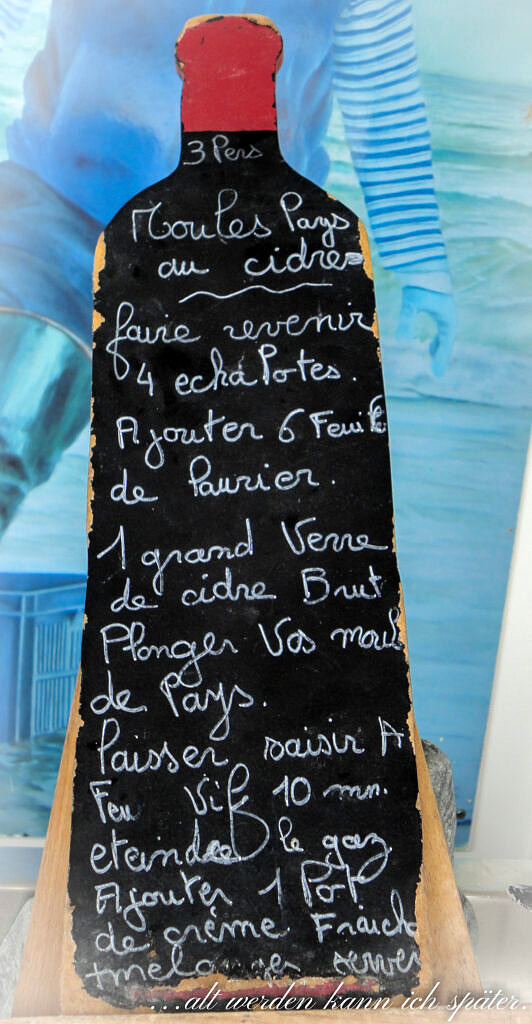 3 Pers
Moules Pays
au cidre
faire revenir
4 echalotes.
Ajouter 6 Feuill
de laurier.
1 grand Verre
de cidre Brut
Plonger Vos moul
de Pays.
laisser saisir A
Feu Vif 10 mn.
eteindre le gaz
Ajouter 1 Pot
de crème Fraich
+ melanger server
...alt werden kann ich später.